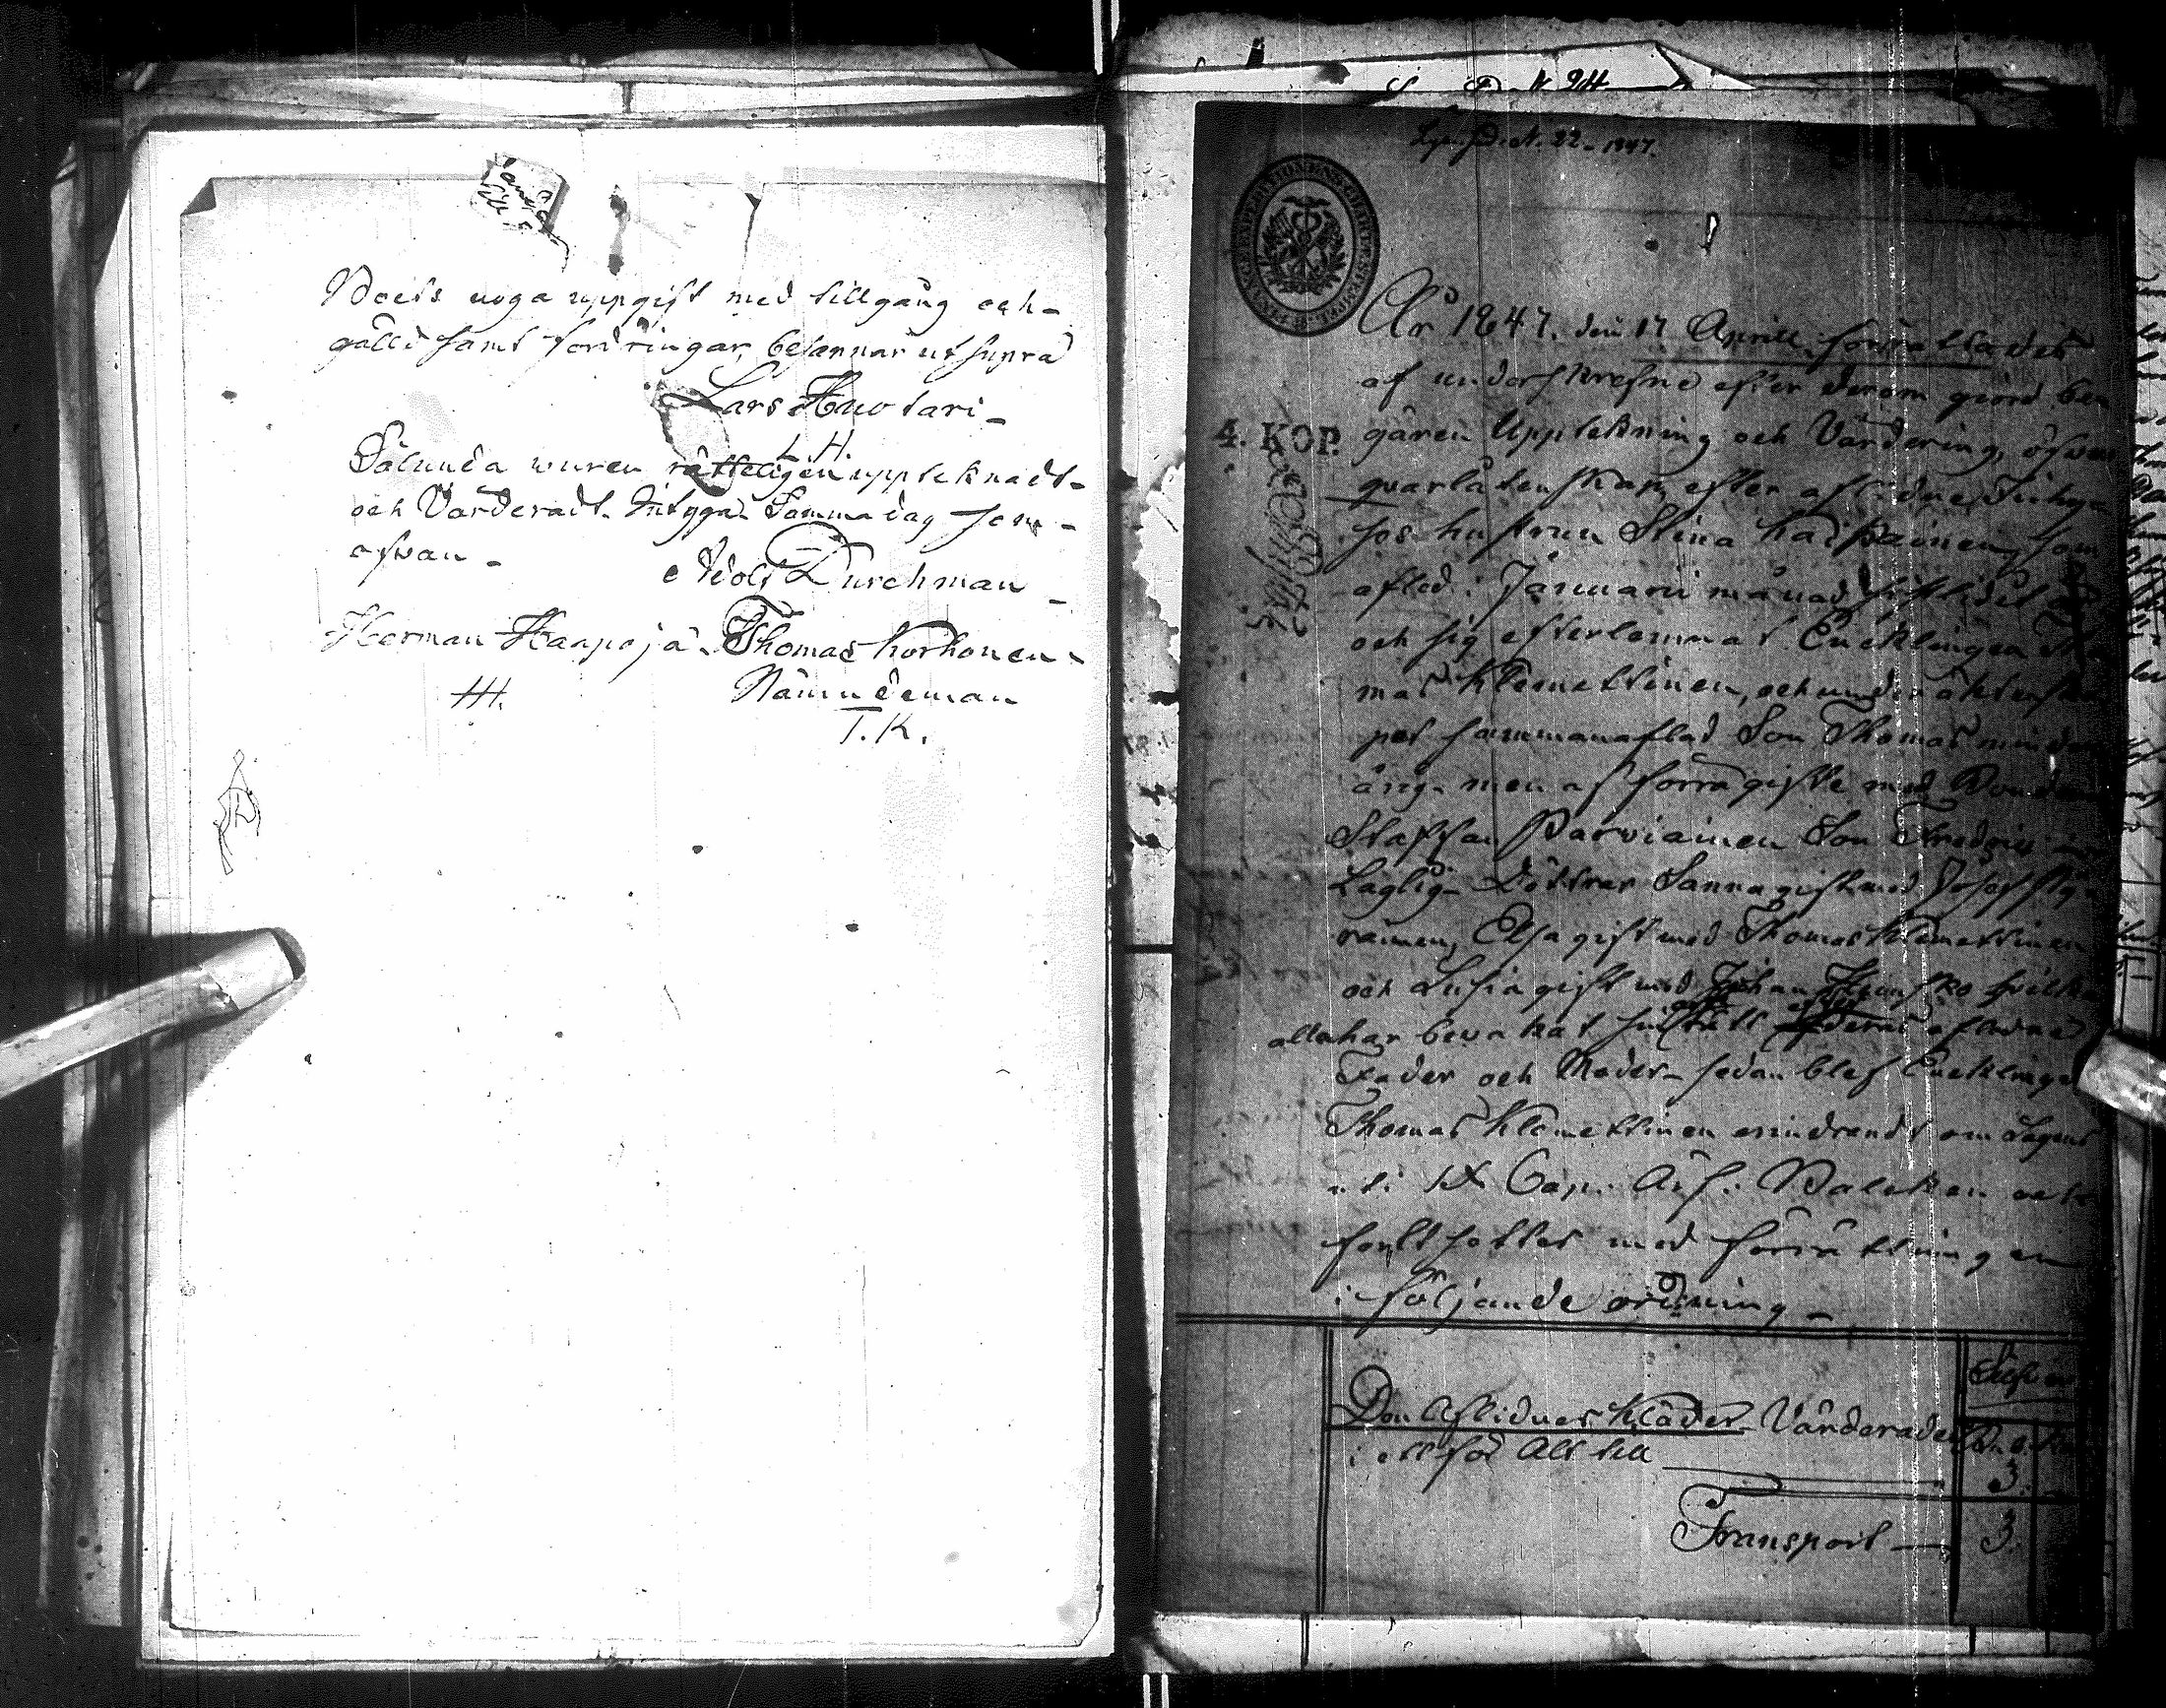 Boets noga uppgift med tillgång och-
gälld samt fordringar, besannar ut supra
Lars Huotari-
L. H.
Sålunda wuren rätteligen upteknadt-
och Värderadt. Intygar Samma dag som-
ofvan-
Adolf Durchman-
Herman Haapoja. Thomas Korhonen-
HH. Nämndeman
T. K.
D. N. 22-1847.
År 1847. den 17 Aprill förrättades
af underskrefne efter derom giord
4. KOP. gären Upptekning och Värdering, öfver
qvarlåtenskap efter aflidne
hustrun Stina som
afled i Januarii månad sistledet
och sig efterlemnat Encklingen
mas Klemettinen, och under äktenska
pet sammanaflad Son Thomas minder
årig. men af förra gifte med Bonden
Staffan Parviainen Son Fredric
Laglig- Döttrar Sanna gift med Josef
rainen, Elsa gift med Thomas Klemettinen
och Lusia gift med Johan hvilka
alla har bevakat sin rätt efter deras aflidne
Fader och Moder- sedan blef Encklingen
Thomas Klemettinen erindrandt om Lagens
i IX Cap. Ärf. Balcken och
fortsattes med förrättningen
i följande ordning-
Silfver
Den Aflidnes Kläder Värderades
i ett för Allt till 3.
Transport — 3.